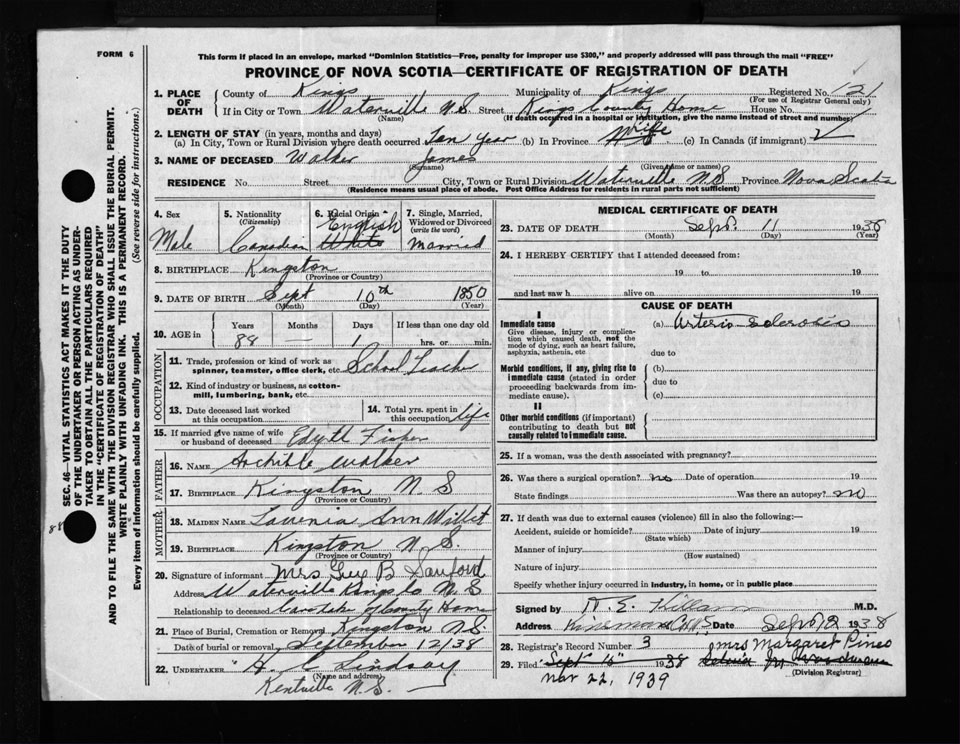 FORM 6
This form if placed in an envelope, marked "Dominion Statistics—Free, penalty for improper use $300," and properly addressed will pass through the mail "FREE"
PROVINCE OF NOVA SCOTIA—CERTIFICATE OF REGISTRATION OF DEATH
1. PLACE OF DEATH County of Kings Municipality of Kings Registered No. 121
(For use of Registrar General only)
If in City or Town Waterville N.S. Street Kings County Home House No.
(Name) (If death occurred in a hospital or institution, give the name instead of street and number)
2. LENGTH OF STAY (in years, months and days)
(a) In City, Town or Rural Division where death occurred Ten Year (b) In Province life (c) In Canada (if immigrant)
3. NAME OF DECEASED Walker James
(Surname) (Given name or names)
RESIDENCE No. Street City, Town or Rural Division Waterville N.S Province Nova Scotia
(Residence means usual place of abode. Post Office Address for residents in rural parts not sufficient)
4. Sex Male
5. Nationality (Citizenship) Canadian
6. Racial Origin English White
7. Single, Married, Widowed or Divorced (write the word) Married
8. BIRTHPLACE Kingston
(Province or Country)
9. DATE OF BIRTH Sept 10th 1850
(Month) (Day) (Year)
10. AGE in Years 88 Months — Days 1 If less than one day old hrs. or min.
OCCUPATION
11. Trade, profession or kind of work as spinner, teamster, office clerk, etc. School Teacher
12. Kind of industry or business, as cotton-mill, lumbering, bank, etc.
13. Date deceased last worked at this occupation
14. Total yrs. spent in this occupation life
15. If married give name of wife or husband of deceased Edyth Fisher
FATHER
16. NAME Archible Walker
17. BIRTHPLACE Kingston N.S
(Province or Country)
MOTHER
18. MAIDEN NAME Lavenia Ann Willet
19. BIRTHPLACE Kingston N.S.
(Province or Country)
20. Signature of informant Mrs Guy B Sanford
Address Waterville Kings Co N.S
Relationship to deceased Caretaker of County Home
21. Place of Burial, Cremation or Removal Kingston N.S
Date of burial or removal September 12/38
22. UNDERTAKER Lindsay
(Name and address)
Kentville N.S.
MEDICAL CERTIFICATE OF DEATH
23. DATE OF DEATH Sept. 11 1938
(Month) (Day) (Year)
24. I HEREBY CERTIFY that I attended deceased from:
19 to 19
and last saw h alive on 19
CAUSE OF DEATH
I
Immediate cause (a) Arterio Sclerosis
Give disease, injury or complication which caused death, not the mode of dying, such as heart failure, asphyxia, asthenia, etc
due to
Morbid conditions, if any, giving rise to immediate cause (stated in order proceeding backwards from immediate cause).
(b)
due to
(c)
II
Other morbid conditions (if important) contributing to death but not causally related to immediate cause.
25. If a woman, was the death associated with pregnancy?
26. Was there a surgical operation? no Date of operation 19
State findings Was there an autopsy? no
27. If death was due to external causes (violence) fill in also the following:—
Accident, suicide or homicide? Date of injury 19
(State which)
Manner of injury
(How sustained)
Nature of injury
Specify whether injury occurred in industry, in home, or in public place
Signed by M.D.
Address Date Sept 12 1938
28. Registrar's Record Number 3 Mrs Margaret Pineo
29. Filed Sept 16 1938
(Division Registrar)
Nov 22, 1939
SEC. 46—VITAL STATISTICS ACT MAKES IT THE DUTY
OF THE UNDERTAKER OR PERSON ACTING AS UNDER-
TAKER TO OBTAIN ALL THE PARTICULARS REQUIRED
IN THE "CERTIFICATE OF REGISTRATION OF DEATH"
AND TO FILE THE SAME WITH THE DIVISION REGISTRAR WHO SHALL ISSUE THE BURIAL PERMIT.
WRITE PLAINLY WITH UNFADING INK. THIS IS A PERMANENT RECORD.
Every item of information should be carefully supplied. (See reverse side for instructions.)
88